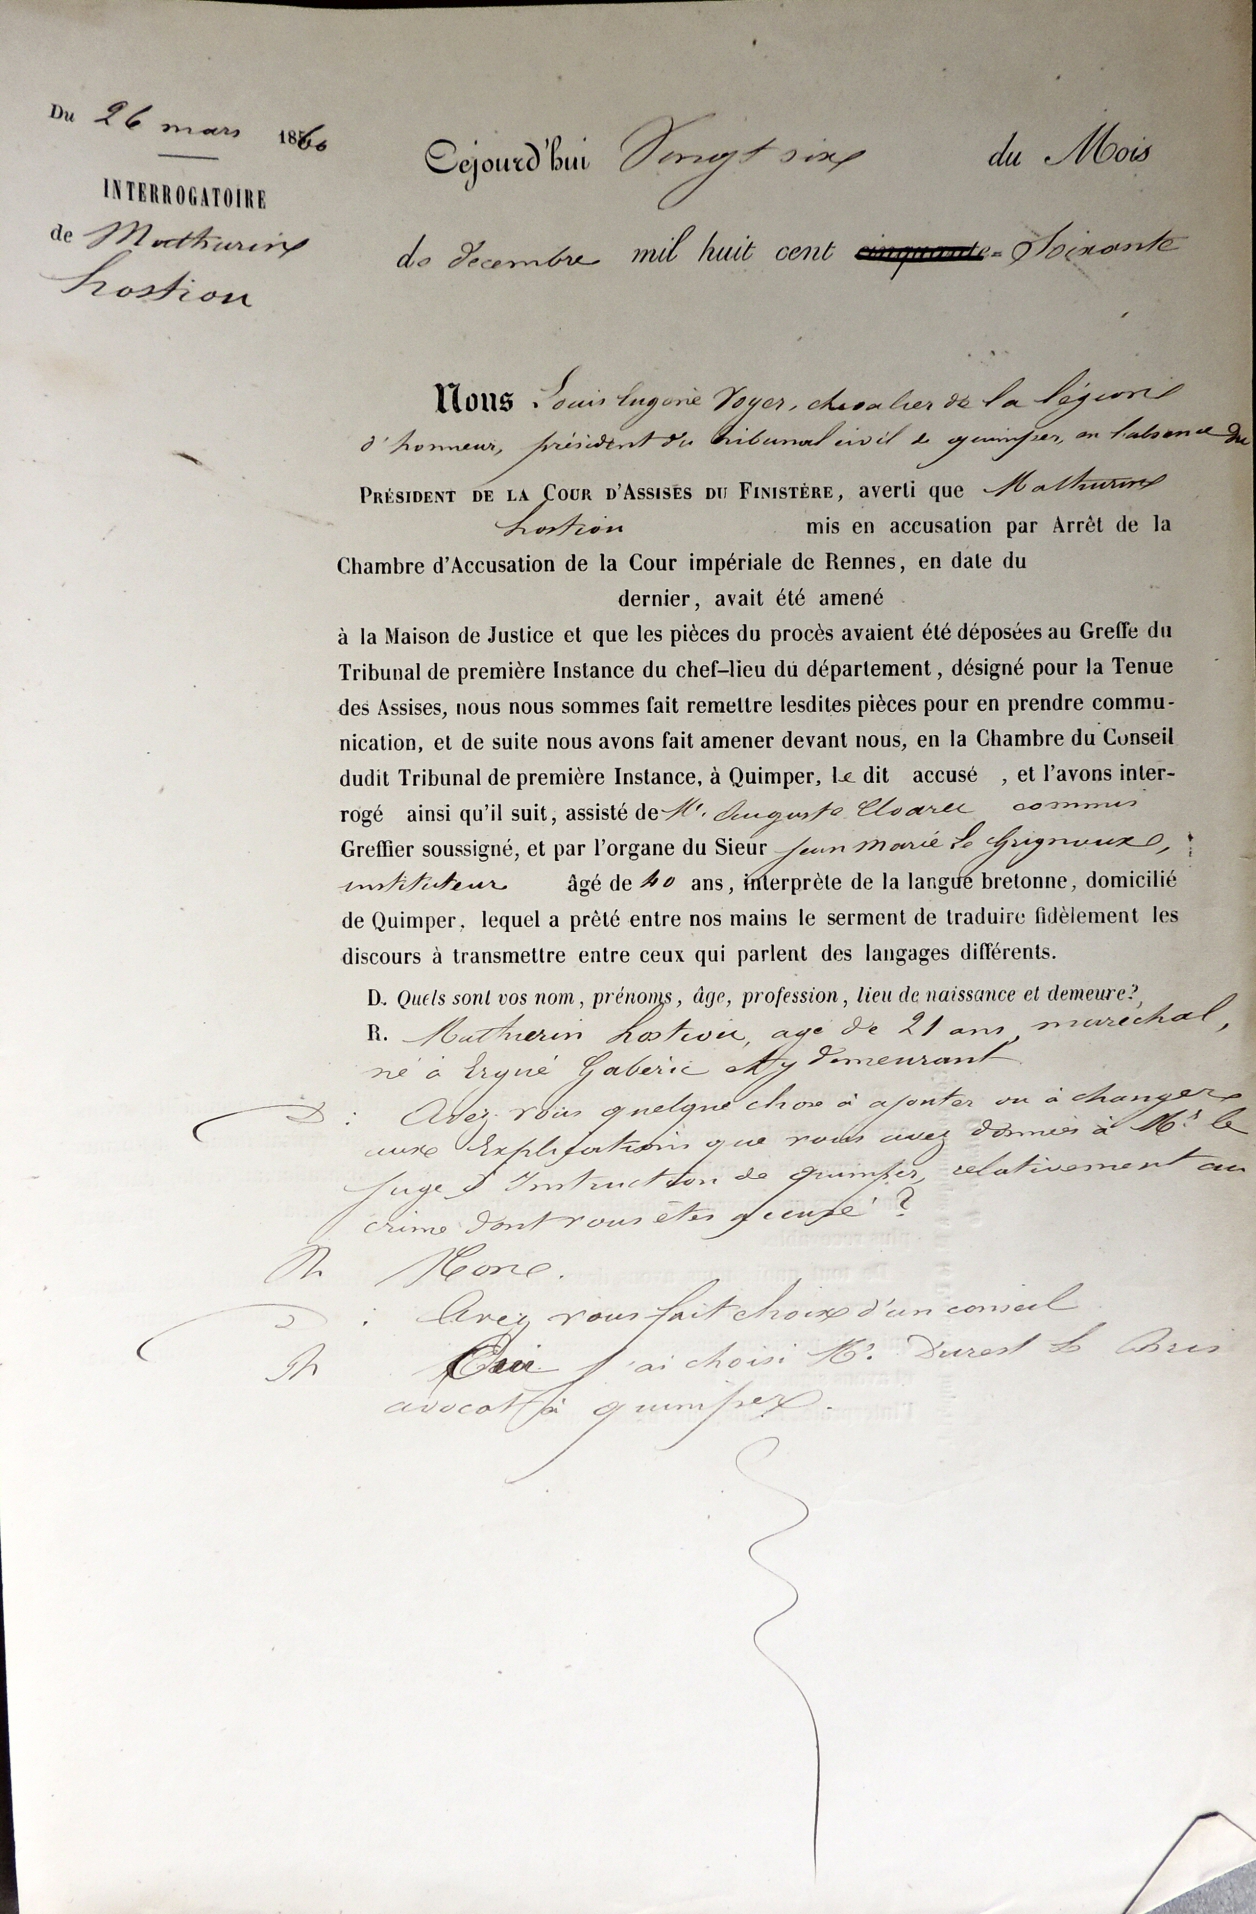 Du 26 mars 1860
INTERROGATOIRE
de Mathurin
Lostiou
Cejourd'hui Vingt six du Mois
de décembre mil huit cent cinquante= Soixante
Nous Louis Eugène Voyer, chevalier de la légion
d'honneur, président du tribunal civil de quimper, en l'absence du
PRÉSIDENT DE LA COUR D'ASSISES DU FINISTÈRE, averti que Mathurin
Lostiou mis en accusation par Arrêt de la
Chambre d'Accusation de la Cour impériale de Rennes, en date du
dernier, avait été amené
à la Maison de Justice et que les pièces du procès avaient été déposées au Greffe du
Tribunal de première Instance du chef-lieu du département, désigné pour la Tenue
des Assises, nous nous sommes fait remettre lesdites pièces pour en prendre commu-
nication, et de suite nous avons fait amener devant nous, en la Chambre du Conseil
dudit Tribunal de première Instance, à Quimper, le dit accusé , et l'avons inter-
rogé ainsi qu'il suit, assisté de Mr. Auguste Cloarec commis
Greffier soussigné, et par l'organe du Sieur Jean Marie Le Grignoux,
instituteur âgé de 40 ans, interprète de la langue bretonne, domicilié
de Quimper, lequel a prêté entre nos mains le serment de traduire fidèlement les
discours à transmettre entre ceux qui parlent des langages différents.
D. Quels sont vos nom, prénoms, âge, profession, lieu de naissance et demeure?
R. Mathurin Lostiou, agé de 21 ans, maréchal,
né à Ergué Gabéric et y demeurant
D : Avez vous quelque chose à ajouter ou à changer
aux Explications que vous avez données à Mr. le
juge d'Instruction de quimper, relativement au
crime dont vous êtes accusé ?
R Non.
D : Avez vous fait choix d'un conseil
R Oui j'ai choisi Mr. Durest Le Bris
avocat à quimper.